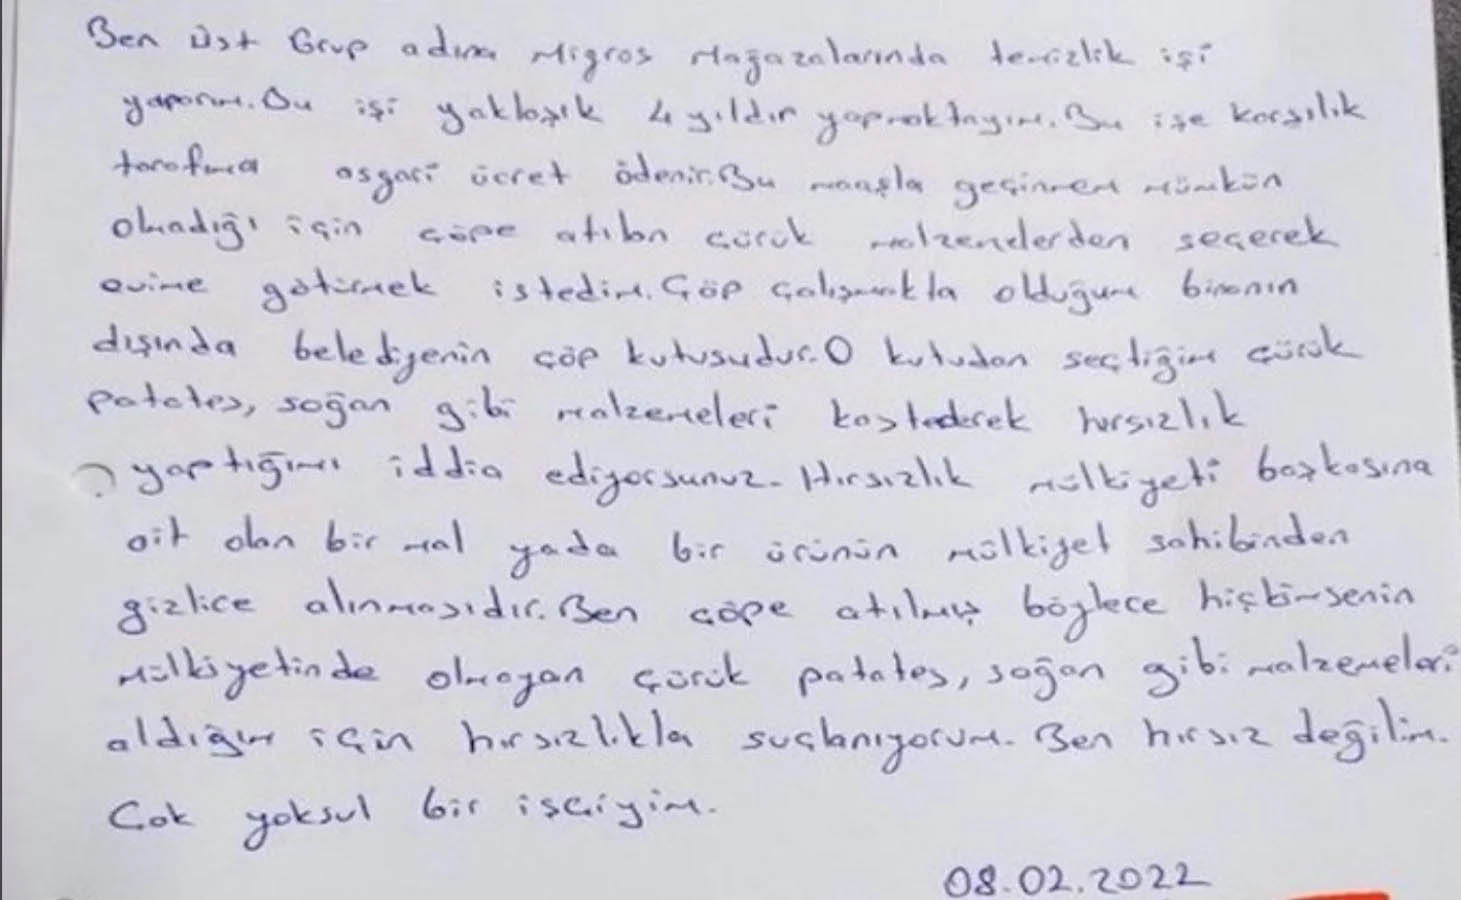 Ben Üst Grup adına Migros Mağazalarında temizlik işi
yaparım. Bu işi yaklaşık 4 yıldır yapmaktayım. Bu işe karşılık
tarafıma asgari ücret ödenir. Bu maaşla geçinmem mümkün
olmadığı için çöpe atılan çürük malzemelerden seçerek
evime götürmek istedim. Çöp çalışmakla olduğum binanın
dışında belediyenin çöp kutusudur. O kutudan seçtiğim çürük
patates, soğan gibi malzemeleri kastederek hırsızlık
yaptığımı iddia ediyorsunuz. Hırsızlık mülkiyeti başkasına
ait olan bir mal yada bir ürünün mülkiyet sahibinden
gizlice alınmasıdır. Ben çöpe atılmış böylece hiçbimsenin
mülkiyetinde olmayan çürük patates, soğan gibi malzemeleri
aldığım için hırsızlıkla suçlanıyorum. Ben hırsız değilim.
Çok yoksul bir işçiyim.
08.02.2022